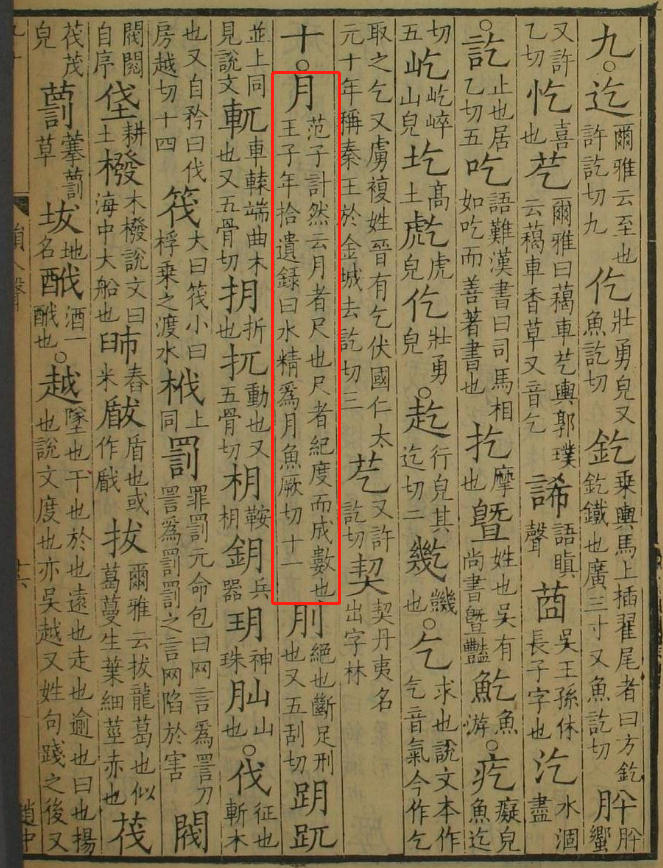 九○迄爾雅云至也許訖切九仡壯勇皃又魚訖切釳乘輿馬上插翟尾者曰方釳釳鐵也廣三寸又魚訖切肸肸蠁
又許乙切忔喜也芞爾雅曰藒車芞輿郭璞云藒車香草又音乞語瞋聲吳王孫休長子字也汔水涸盡
○訖止也居乙切五吃語難漢書曰司馬相如吃而善著書也扢摩也曁姓也吳有尚書曁豔䰴魚游○疙癡皃魚迄
切五屹屹崪山皃圪高土虎皃仡壯勇皃○赺行皃其迄切二也○乞求也說文本作气音氣今作乞
取之乞又虜複姓晉有乞伏國仁太元十年稱秦王於金城去訖切三芞又許訖切契契丹夷名出字林
十○月范子計然云月者尺也尺者紀度而成數也王子年拾遺錄曰水精爲月魚厥切十一刖絕也斷足刑也又五刮切跀
並上同見說文軏車轅端曲木也又五骨切抈折也扤動也又五骨切枂鞍枂鈅兵器玥神珠山也○伐征也斬木
也又自矜曰伐房越切十四筏大曰筏小曰桴乘之渡水栰上同罰罪罰元命包曰网言爲詈刀詈爲罰罰之言网陷於害閥
閥閱自序垡耕土橃木橃說文曰海中大船也舂米瞂盾也或作拔爾雅云拔龍葛也似葛蔓生葉細莖赤也茷
茷茂皃草坺地名酒一也○越墜也干也於也遠也走也逾也曰也揚也說文度也亦吳越又姓句踐之後又